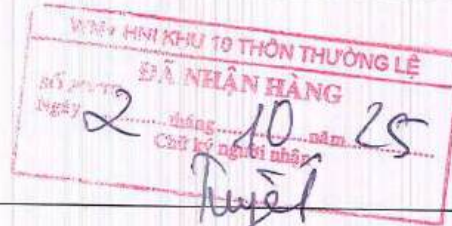 WM+ HNI KHU 10 THÔN THƯỜNG LỆ
ĐÃ NHẬN HÀNG
Ngày 2 tháng 10 năm 25
Chữ ký người nhận
Tuyết